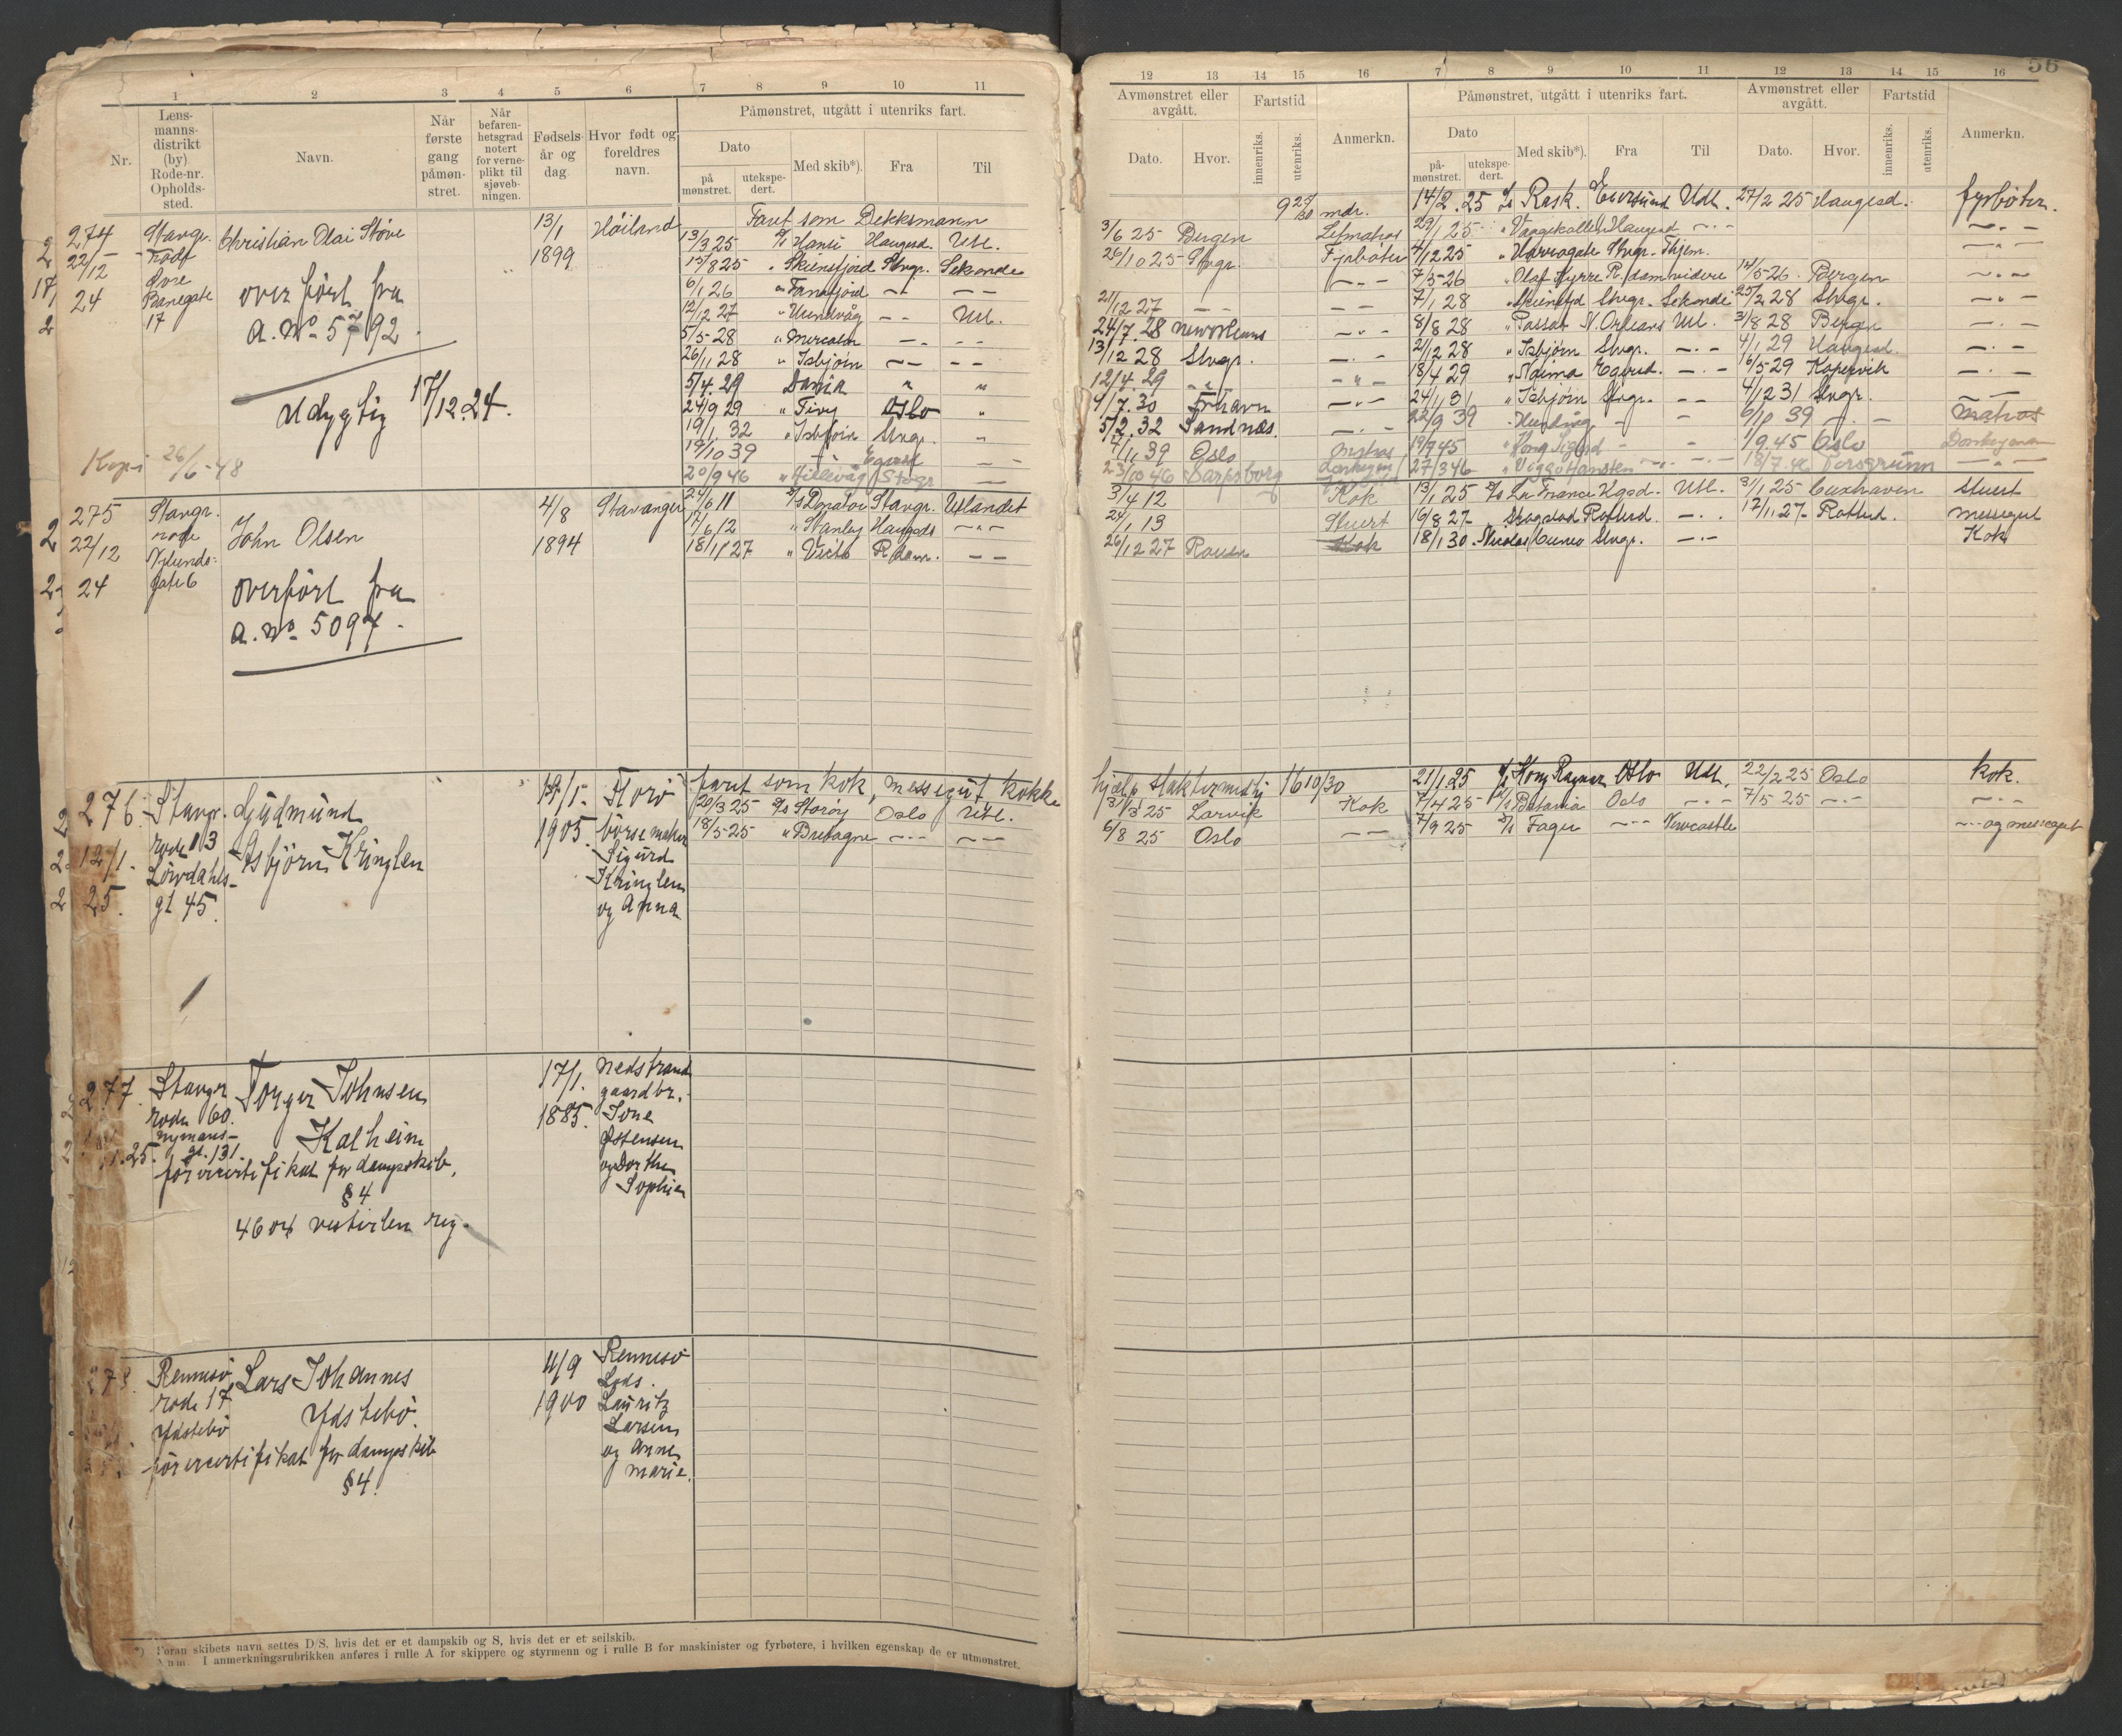 56
1 2 3 4 5 6 7 8 9 10 11
Nr.
Lens-
manns-
distrikt
(by)
Rode-nr.
Opholds-
sted.
Navn.
Når
første
gang
påmøn-
stret.
Når
befaren-
hetsgrad
notert
for verne-
plikt til
sjøveb-
ningen.
Fødsels-
år og
dag.
Hvor født og
foreldres
navn.
Påmønstret, utgått i utenriks fart.
Dato
på
mønstret.
utekspe-
dert.
Med skib*).
Fra
Til
274
22/12
24
Stavgr.
Øvre
Banegate
17
Christian Olai Støve
overført fra
a. No 5792.
Udygtig 17/12.24.
Kopi 26/6-48
13/1
1899
Høiland
Faret som Dekksmann
13/3 25 Hansi Haugesd. Utl.
15/8 25 " Skiensfjord Stvgr. Sekonde
6/1 26 " Fanefjord — —
12/12 27 " Hundvåg — — Utl.
5/5-28 " Mercator — —
26/11 28 " Isbjørn — —
5/4. 29 Dania " "
24/9 29 " Tivy Oslo "
19/1. 32 " Isbjørn Stvgr. "
19/10 39 — Egersd —
20/9 46 " Hillevåg Stvgr —
275
22/12
24
Stavgr.
rode
Nylunds-
gate 6
John Olsen
overført fra
a. No 5097.
4/8
1894
Stavanger
24/6 11 D/s Donator Stavgr. Utlandet
17/6 12 " Stanley Haugesd —"—
18/11 27 R.dam. — —
276
12/1.
25.
Stavgr.
rode 13
Løvdahls-
gt 45.
Gudmund
Asbjørn Kringlen
19/1.
1905.
Florø
børsemaker
Sigurd
Kringlen
og Anna
faret som kok, messegut, kokke
20/3 25 D/s Storøy Oslo Utl.
18/5-25 " Bretagne —"— —"—
277.
1.25.
Stavgr
rode 60.
nymans-
gt. 131.
Torger Johnsen
Kalheim
førercertifikat for dampskib,
§4
4604 vesterlen reg.
17/1.
1885.
nedstrand
gaardbr.
Tone
Østensen
og Dorthe
Sophie
278.
Rennesø
rode 17
Ydstebø
Lars Johannes
Ydstebø.
førercertifikat for dampskib
§4.
4/9
1900
Rennesø
Lods.
Lauritz
Larsen
og Anne
Marie.
*) Foran skibets navn settes D/S, hvis det er et dampskib og S, hvis det er et seilskib.
Anm. I anmerkningsrubrikken anføres i rulle A for skippere og styrmenn og i rulle B for maskinister og fyrbøtere, i hvilken egenskap de er utmønstret.
12 13 14 15 16 7 8 9 10 11 12 13 14 15 16
Avmønstret eller
avgått.
Dato.
Hvor.
Fartstid
innenriks.
utenriks.
Anmerkn.
Påmønstret, utgått i utenriks fart.
Dato
på-
mønstret.
utekspe-
dert.
Med skib*).
Fra
Til
Avmønstret eller
avgått.
Dato.
Hvor.
Fartstid
innenriks.
utenriks.
Anmerkn.
9 25/30 mdr. 14/2. 25 D/s Rask. Egersund Utl. 27/2 25 Haugesd. fyrbøter.
3/6 25 Bergen Letmatros 29/1 25 " Vaagekallen Haugesd —"—
26/10 25 Stvgr. Fyrbøter 4/12 25 Stvgr. Thjem. —"—
—"— 7/3-26 " Olaf Kyrre R.dam videre 14/5-26. Bergen —"—
21/12 27 — — — — 7/1 28 " Skiensfjd Stvgr. Sekonde 25/2 28 Stvgr. —"—
24/7. 28 New Orleans —"— 8/8 28 " Passat N. Orleans Utl. 31/8 28 Bergen —"—
13/12 28 Stvgr. —"— 21/12 28 " Isbjørn Stvgr. —"— 4/1 29 Haugesd. —"—
12/4 29 —"— —"— 18/4 29 Egersd. —"— 6/5-29 Kopervik —"—
4/7.30 Fr.havn —"— 24/1 31 " Isbjørn Stvgr. — — 4/12 31 Stvgr. — —
5/2.32 Sandnæs. —"— 22/9 39 Hundvåg — 6/10 39 — — Matros
7/11 39 Oslo Matros 19/7 45 " Kong Sigurd — 1/9 45 Oslo Donkeymann
23/10 46 Sarpsborg Donkeymann 27/3 46 " Viggo Hansteen 18/7.46 Porsgrunn —"—
3/4 12 Kok 13/1 25 D/s La France Kgsd. Utl. 31/1 25 Cuxhaven Stuert
24/1 13 Stuert 16/8 27 Rotterd. —"— 12/11 27 Rotterd. messegut
26/12 27 Rouen Kok 18/1 30. Nicolas Cuneo Stvgr. —"— Kok
16 10/30 21/1.25 D/s Kong Ragnar Oslo Utl. 22/2 25 Oslo kok.
3/1 25 Larvik Kok 7/4 25 Betania Oslo —"— 7/5 25 —"— —"—
6/8 25 Oslo —"— 7/9 25 D/s Fager —"— Newcastle —"— og messegut